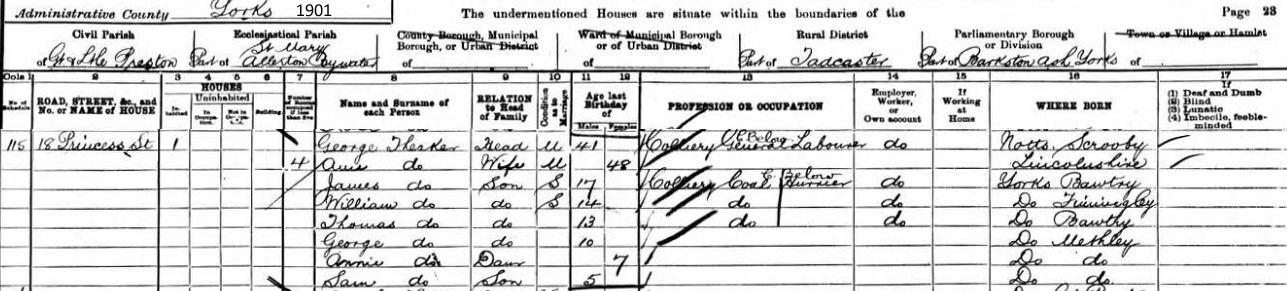 Administrative County Yorks 1901 The undermentioned Houses are situate within the boundaries of the Page 23
Civil Parish Ecclesiastical Parish County Borough, Municipal Borough, or Urban District Ward of Municipal Borough or of Urban District Rural District Parliamentary Borough or Division Town or Village or Hamlet
of Gt & Ltle Preston Part of St Mary Allerton Bywater of of Part of Tadcaster Part of Barkston Ash Yorks of
Cols 1 2 3 4 5 6 7 8 9 10 11 12 13 14 15 16 17
No. of Schedule ROAD, STREET, &c., and No. or NAME of HOUSE HOUSES Inhabited Uninhabited In Occupation Not in Occupation Building Number of Rooms occupied if less than five Name and Surname of each Person RELATION to Head of Family Condition as to Marriage Age last Birthday of Males Females PROFESSION OR OCCUPATION Employer, Worker, or Own account If Working at Home WHERE BORN If (1) Deaf and Dumb (2) Blind (3) Lunatic (4) Imbecile, feeble-minded
115 18 Princess St 1 George Thesker Head M 41 Colliery General Labourer do Notts, Scrooby
4 Ann do Wife M 48 Lincolnshire
James do Son S 17 Colliery Coal Hurrier Below do Yorks Bawtry
William do do S 14 do do Do Finningley
Thomas do do 13 do do Do Bawtry
George do do 10 Do Methley
Annie do Daur 7 Do do
Sam do Son 5 Do do